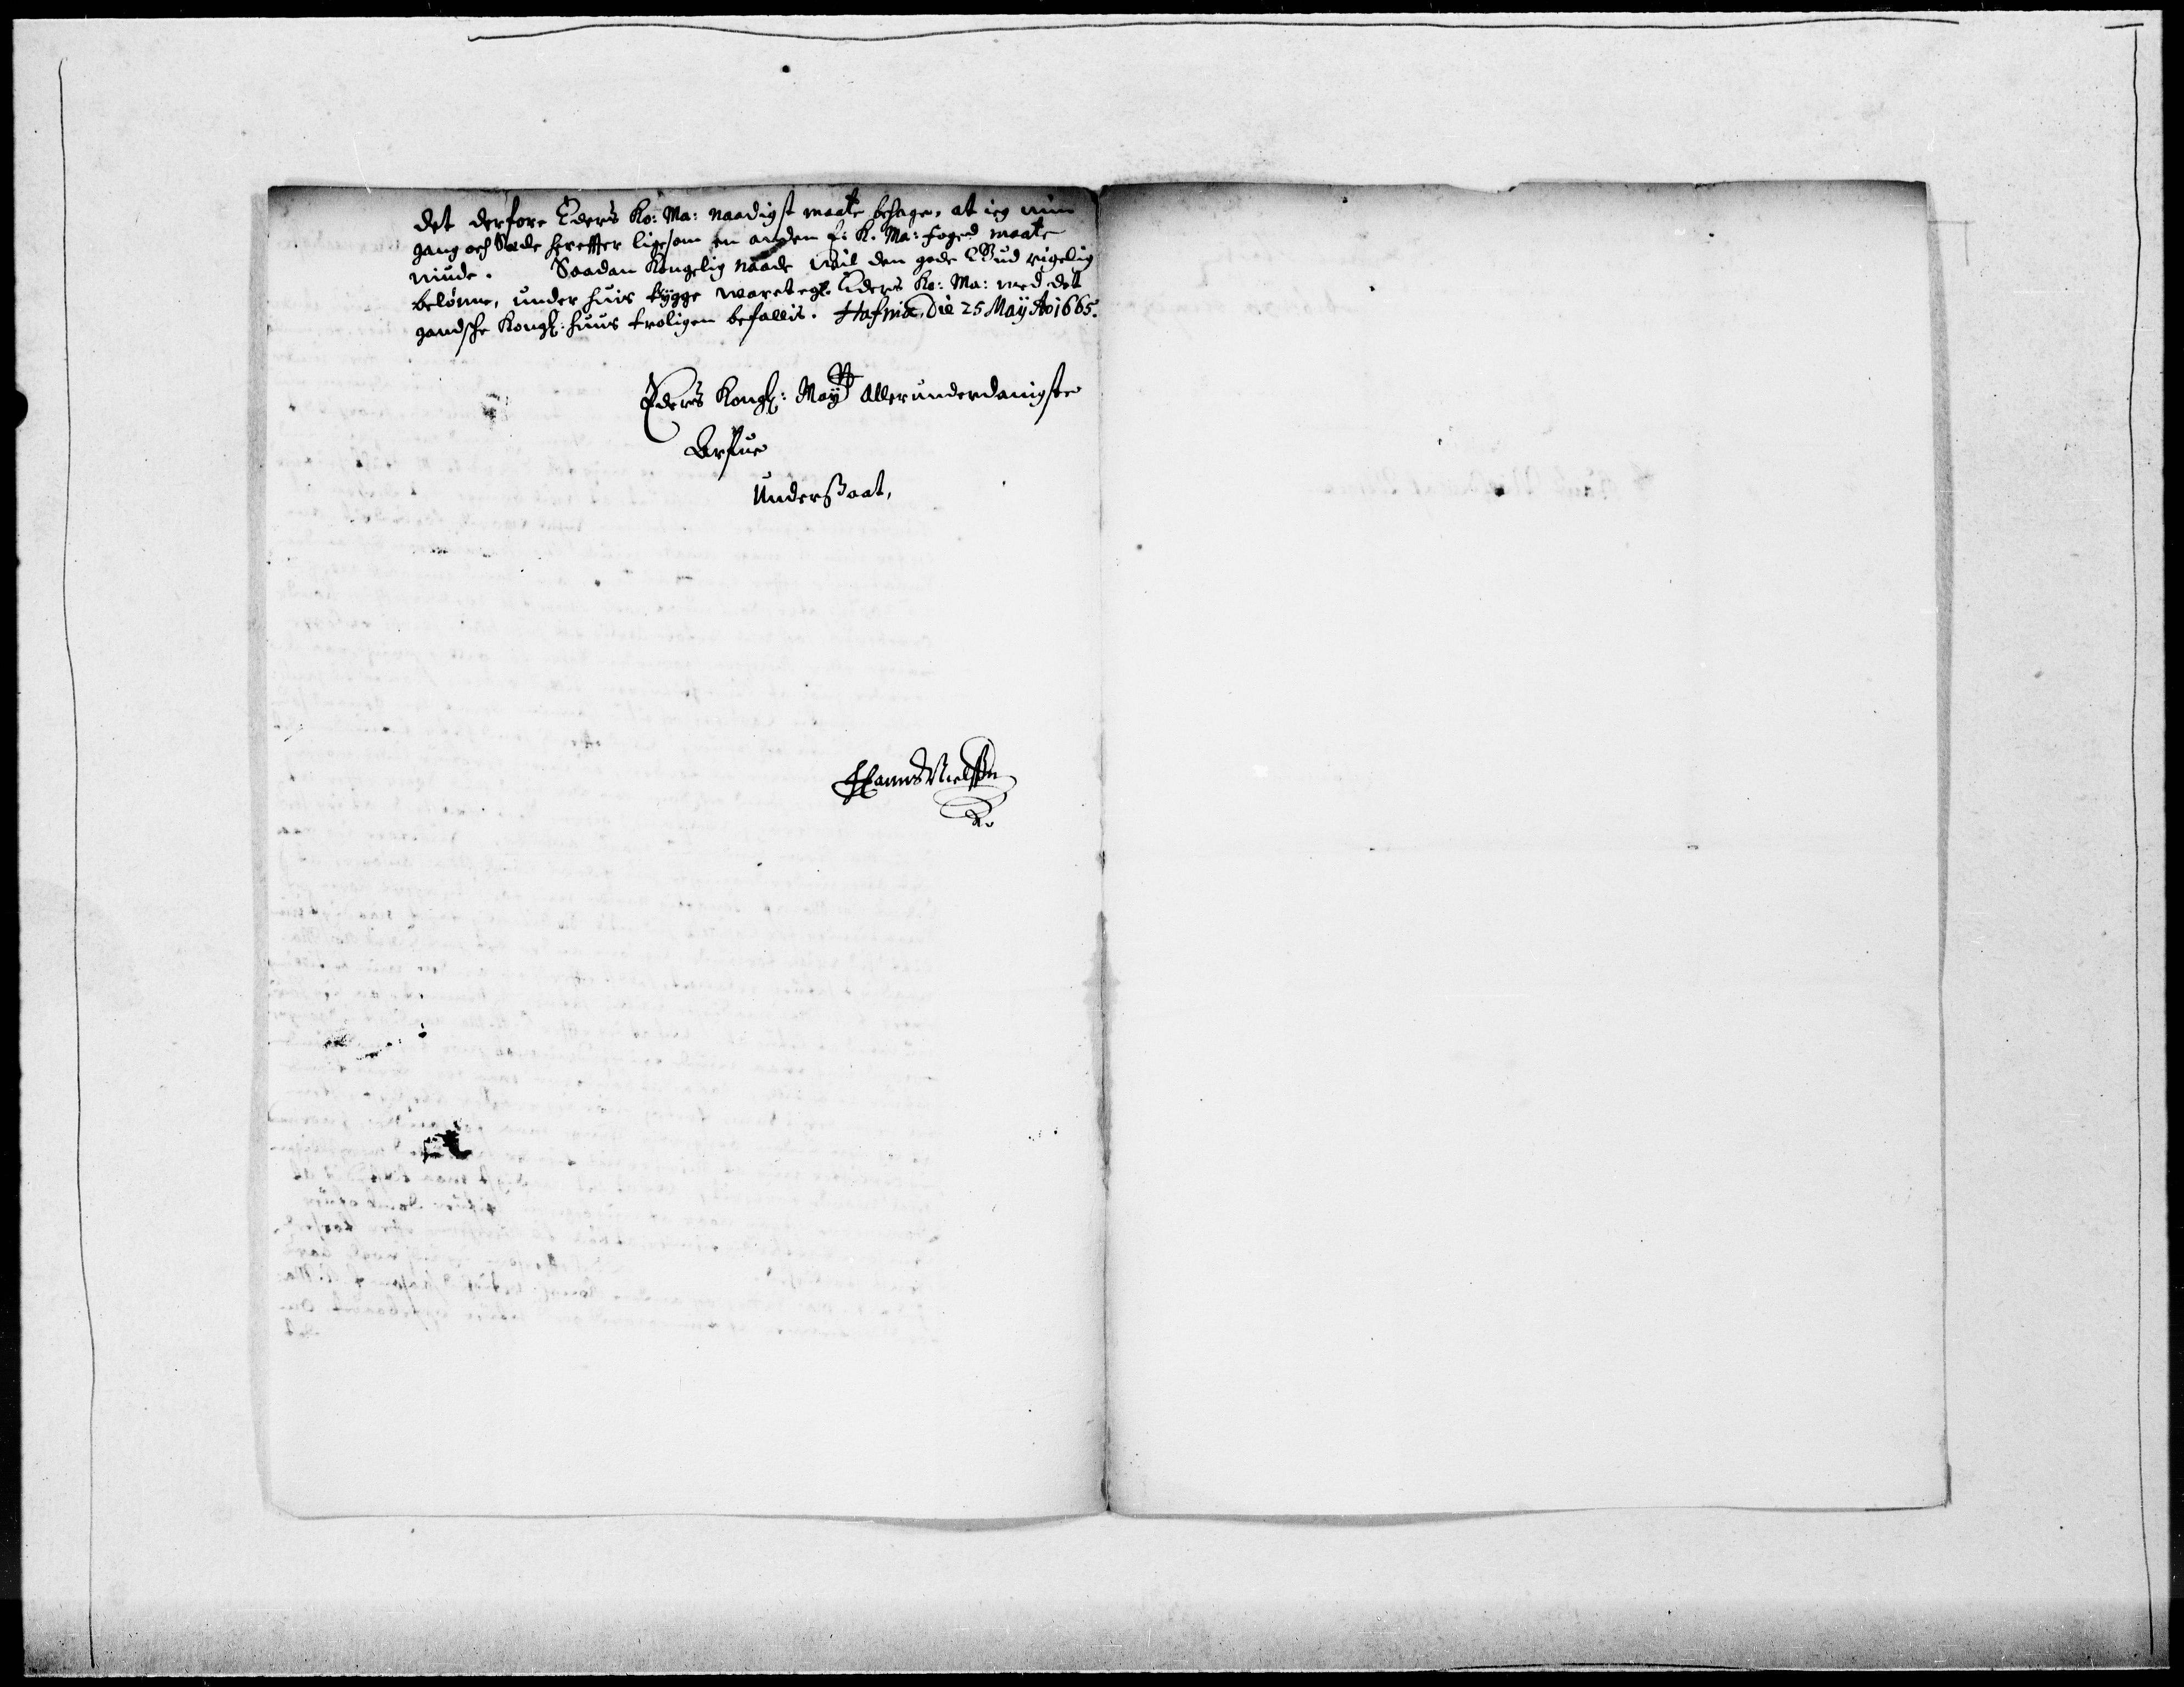 det derfore Eders Ko: Ma: naadigst maate behage, at ieg min
gang och Sæde hereffter ligesom en anden E: K. Ma: foged maate
niude. Saadan Kongelig Naade wil den gode Gud rigelig
belønne, under huis skygge waretegt Eders Ko: Ma: med det
gandsche Kongl: huus troligen befallis. Hafniæ, Die 25 Maÿ Ao 1665.
Eders Kongl: Maÿtt Allerunderdanigste
Arfue
Underßaat,
Hanns Nielßn